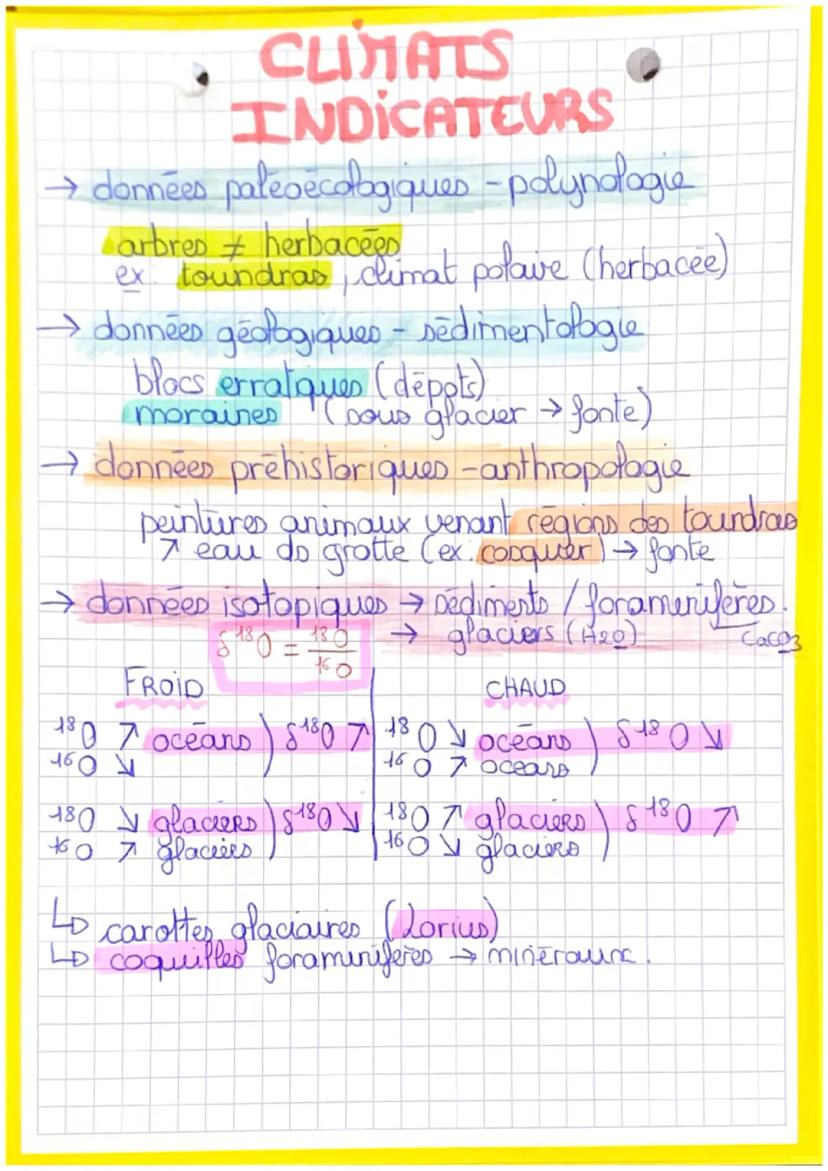 CLIMATS
INDICATEURS
→ données paléoécologiques - polynologie
arbres ≠ herbacées
ex: toundras, climat polaire (herbacée)
→ données géologiques - sédimentologie
blocs erratques (dépots)
moraines (sous glacier → fonte)
→ données préhistoriques - anthropologie
peintures animaux venant régions des toundras
↗ eau ds grotte (ex cosquer) → fonte
→ données isotopiques → sédiments / foraminifères.
→ glaciers (H2O) CaCO3
δ18O = 18O / 16O
FROID CHAUD
18O ↗ océans ) δ18O ↗ 18O ↘ océans ) δ18O ↘
16O ↘ 16O ↗ océans
18O ↘ glaciers ) δ18O ↘ 18O ↗ glaciers ) δ18O ↗
16O ↗ glaciers 16O ↘ glaciers
↳ carottes glaciaires (Lorius)
↳ coquilles foraminifères → minéraux.